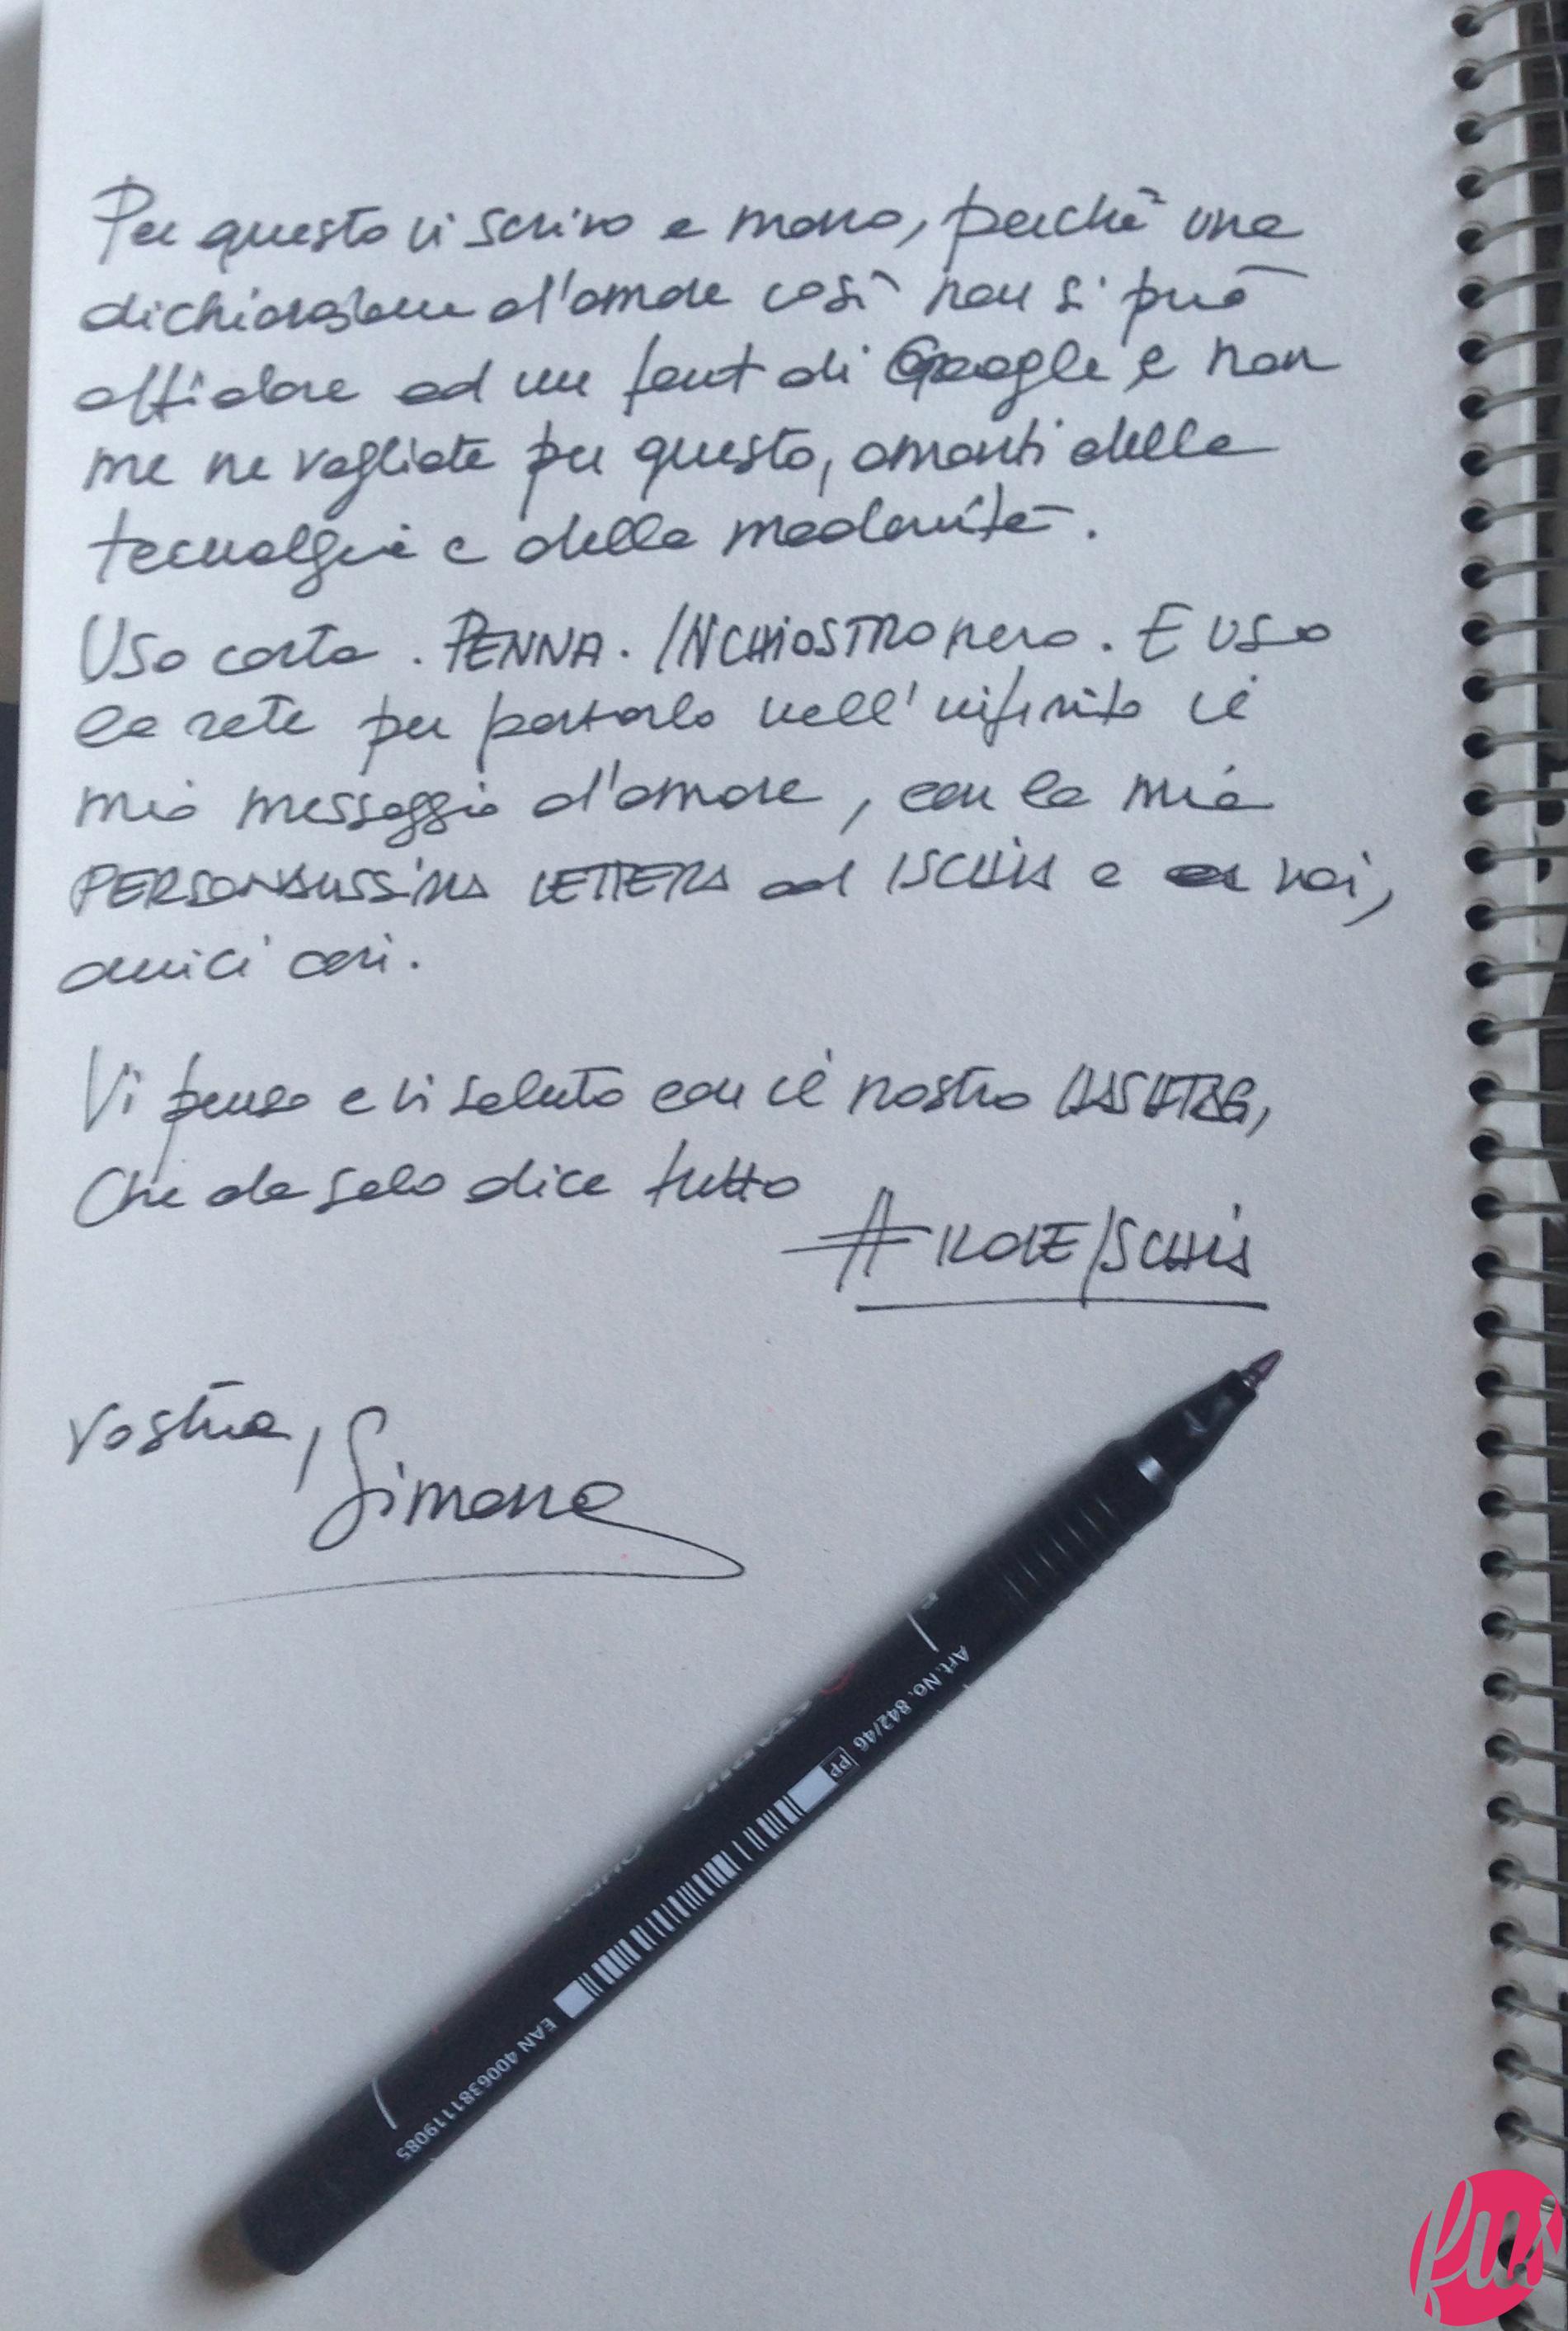 Per questo vi scrivo a mano, perchè una
dichiarazione d'amore così non si può
affidare ad un font di Google e non
me ne vogliate per questo, amanti della
tecnolgia e della modernità.
Uso carta. PENNA. INCHIOSTRO nero. E uso
la rete per portarlo nell'infinito il
mio messaggio d'amore, con la mia
PERSONALISSIMA LETTERA ad ISCHIA e a voi,
amici cari.
Vi penso e vi saluto con il nostro HASHTAG,
Che da solo dice tutto
#ILOVEISCHIA
Vostra, Simona
Art. No. 842/46
PP
EAN 4006381119085